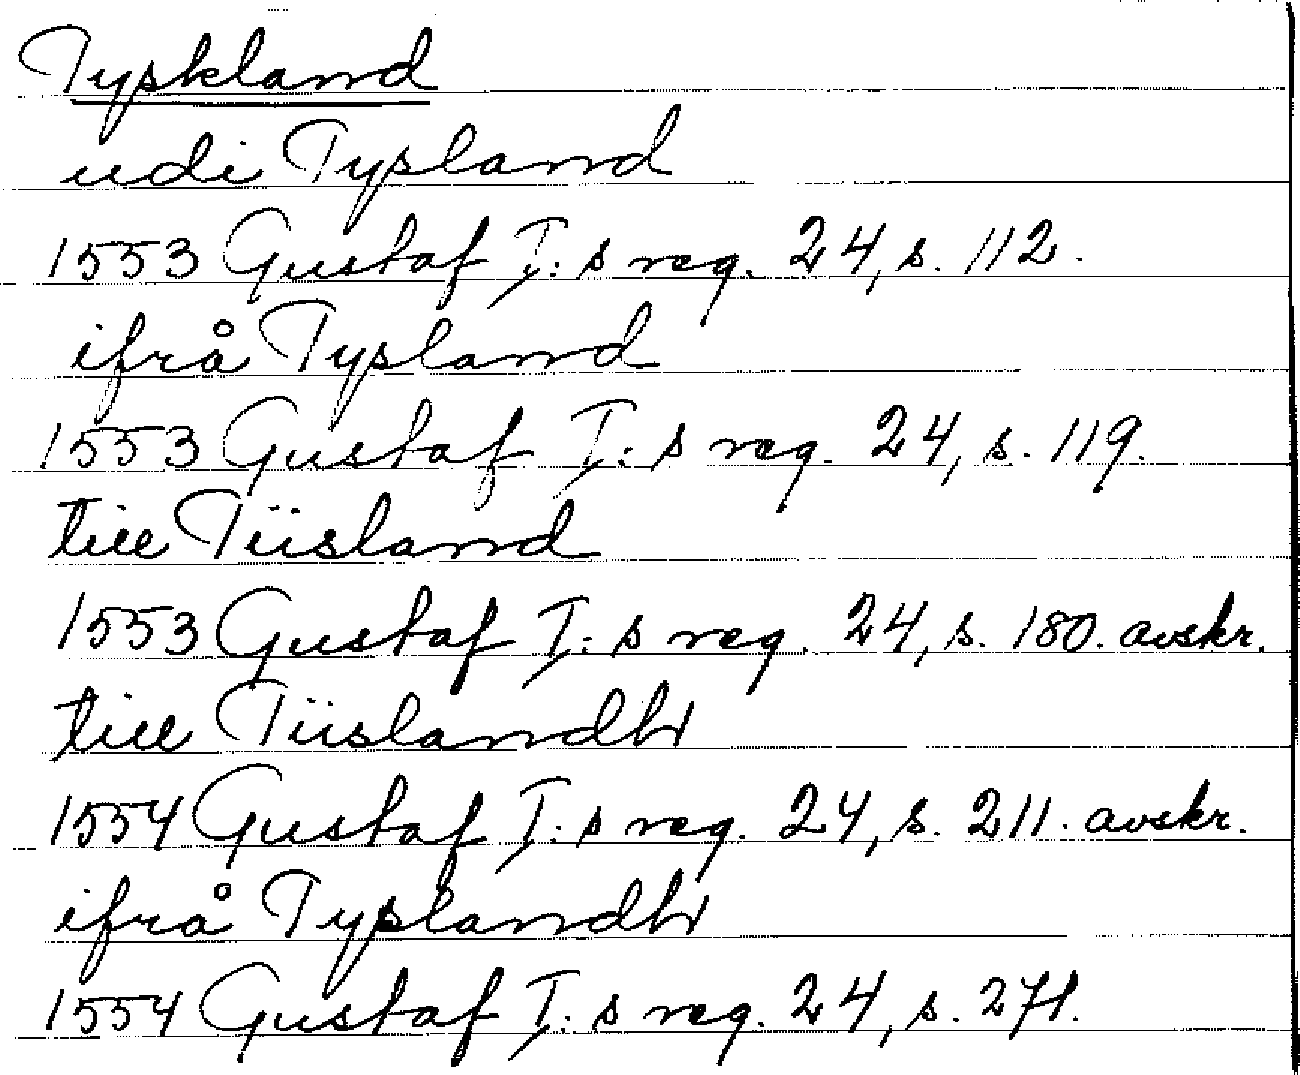 Tyskland
udi Tysland
1553 Gustaf I:s reg. 24, s. 112.
ifrå Tysland
1553 Gustaf I:s reg. 24, s. 119.
till Tiisland
1553 Gustaf I:s reg. 24, s. 180. avskr.
till Tiislandh
1554 Gustaf I:s reg. 24, s. 211. avskr.
ifrå Tyslandh
1554 Gustaf I:s reg. 24, s. 271.